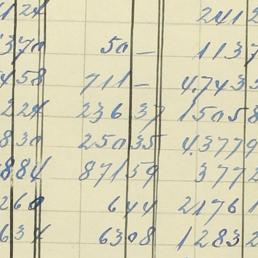 1124 2412
370 50 — 1137
458 711 — 47435
224 236 37 15058
830 250 35 43779
884 871 59 3772
260 644 21761
634 6308 12832